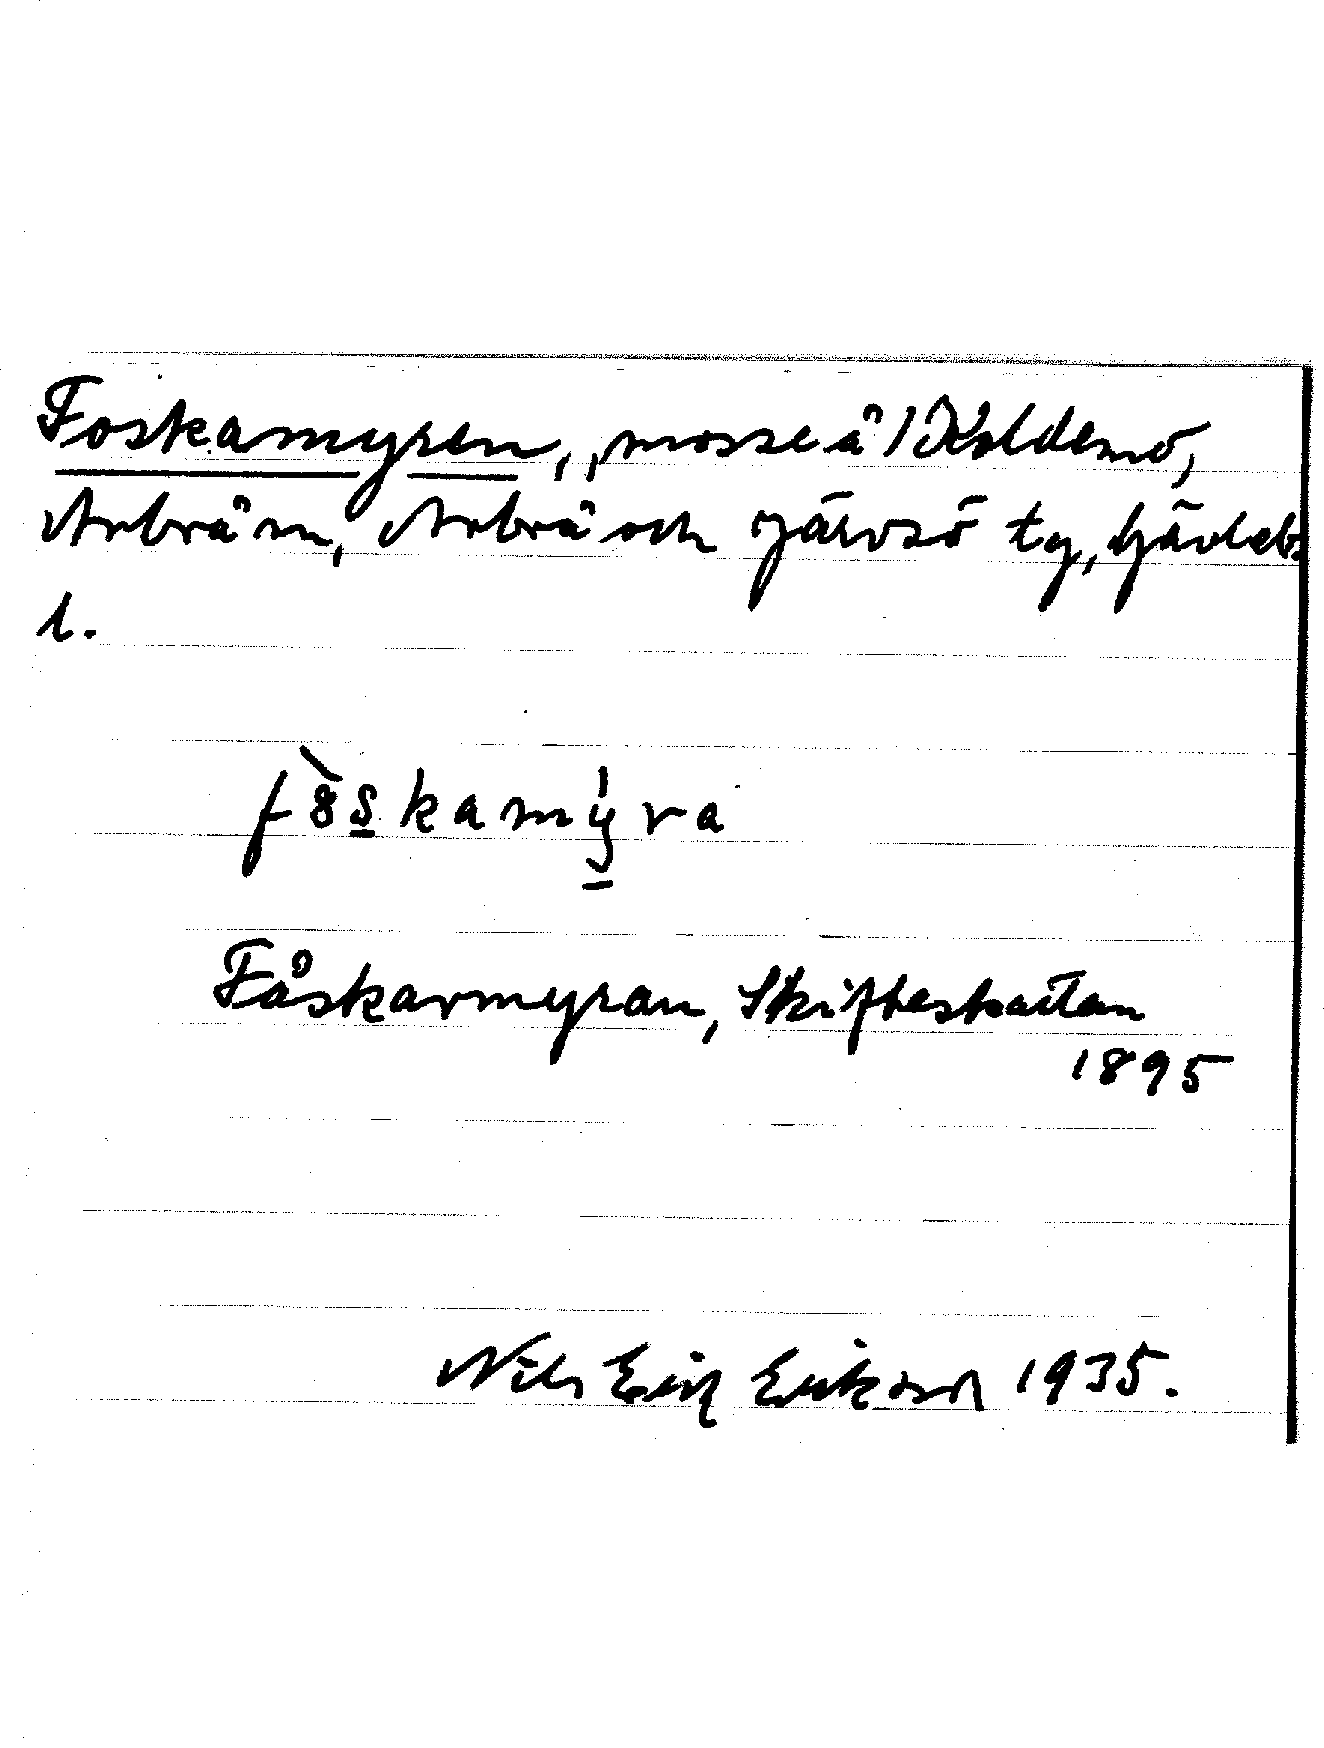 Foskamyren, mosse å 1 Koldemo,
Arbrå sn, Arbrå och Järvsö tg, Gävlebs
l.
fòskamýra
Fåskarmyran, Skifteskartan
1895
Nils Erik Eriksson 1935.